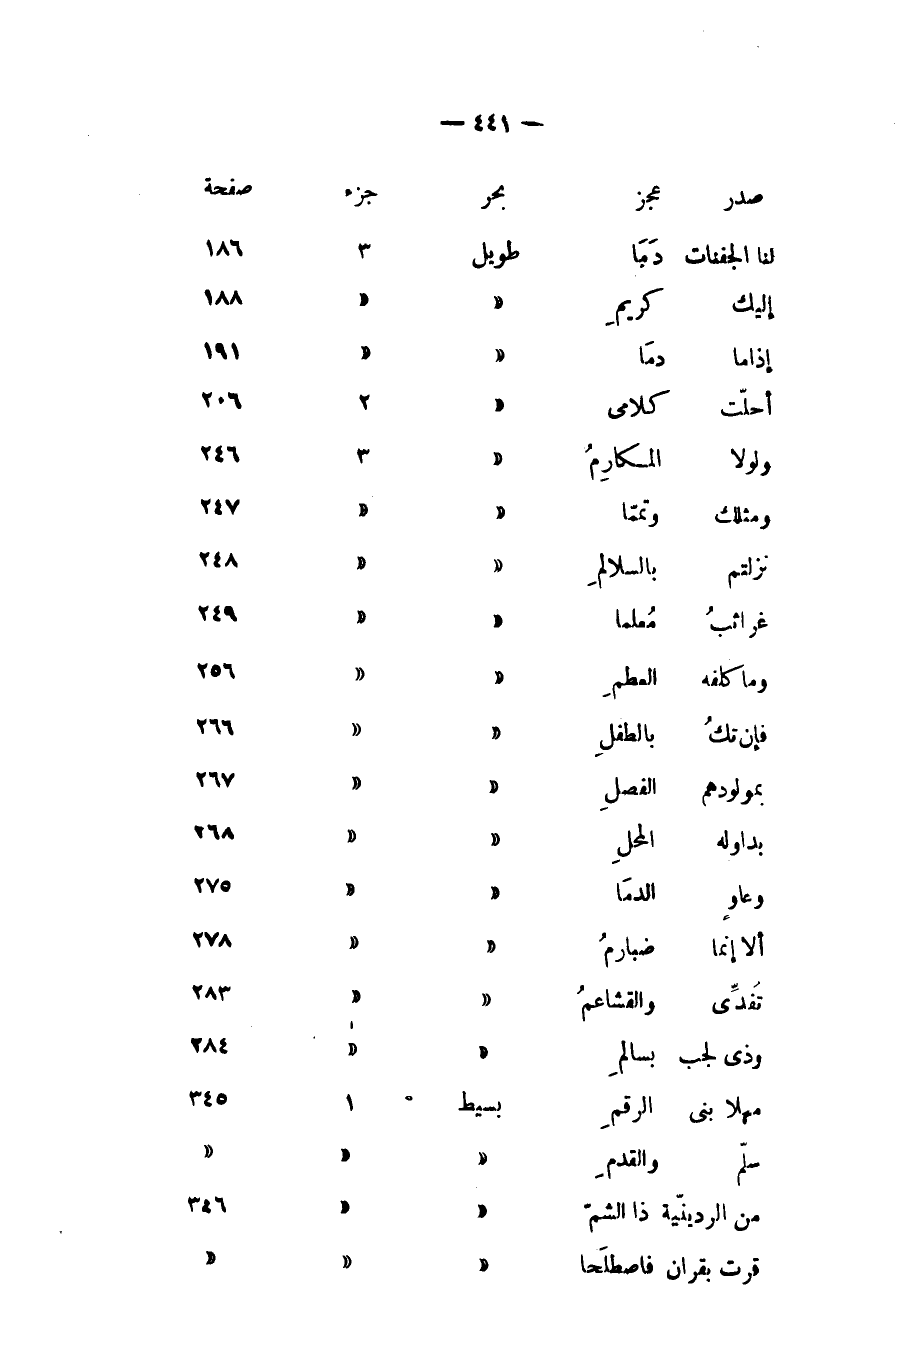 — ٤٤١ —
صدر عجز بحر جزء صفحة
لنا الجفنات دَمَا طويل ٣ ١٨٦
إليك كريمِ » » ١٨٨
إذاما دمَا » » ١٩١
أحلّت كلامى » ٢ ٢٠٦
ولولا المكارِمُ » ٣ ٢٤٦
ومثلك وتممّا » » ٢٤٧
نزلتم بالسلالمِ » » ٢٤٨
غرائبُ مُعلما » » ٢٤٩
وماكلفه العطمِ » » ٢٥٦
فإن تكُ بالطفلِ » » ٢٦٦
بمولودهم الفصلِ » » ٢٦٧
بداوله المحلِ » » ٢٦٨
وعاوٍ الدمَا » » ٢٧٥
ألا إنما ضبارمُ » » ٢٧٨
تَفدِّى والقشاعمُ » » ٢٨٣
وذى لجب بسالمِ » » ٢٨٤
مهلا بنى الرقمِ بسيط ١ ٣٤٥
سلّم والقدمِ » » »
من الردينّية ذا الشمّ » » ٣٤٦
قرت بقران فاصطلَحا » » »